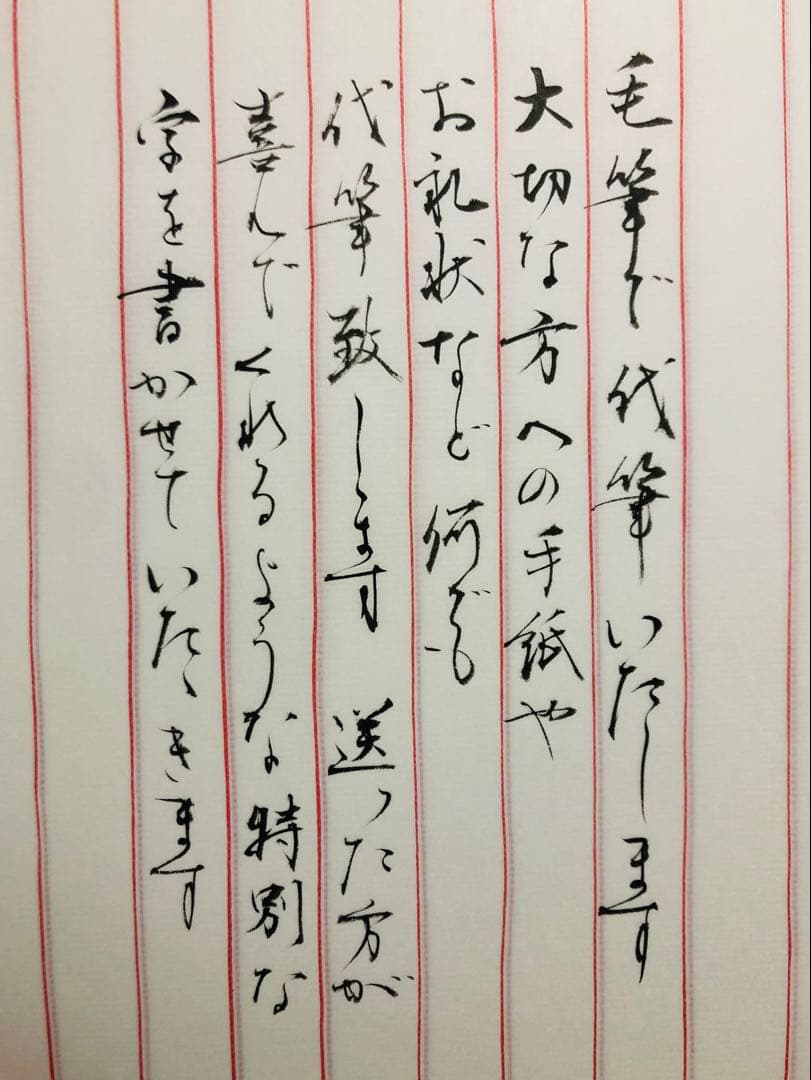 毛筆で代筆いたします
大切な方への手紙や
お礼状など何でも
代筆致します 送った方が
喜んでくれるような特別な
字を書かせていたゞきます